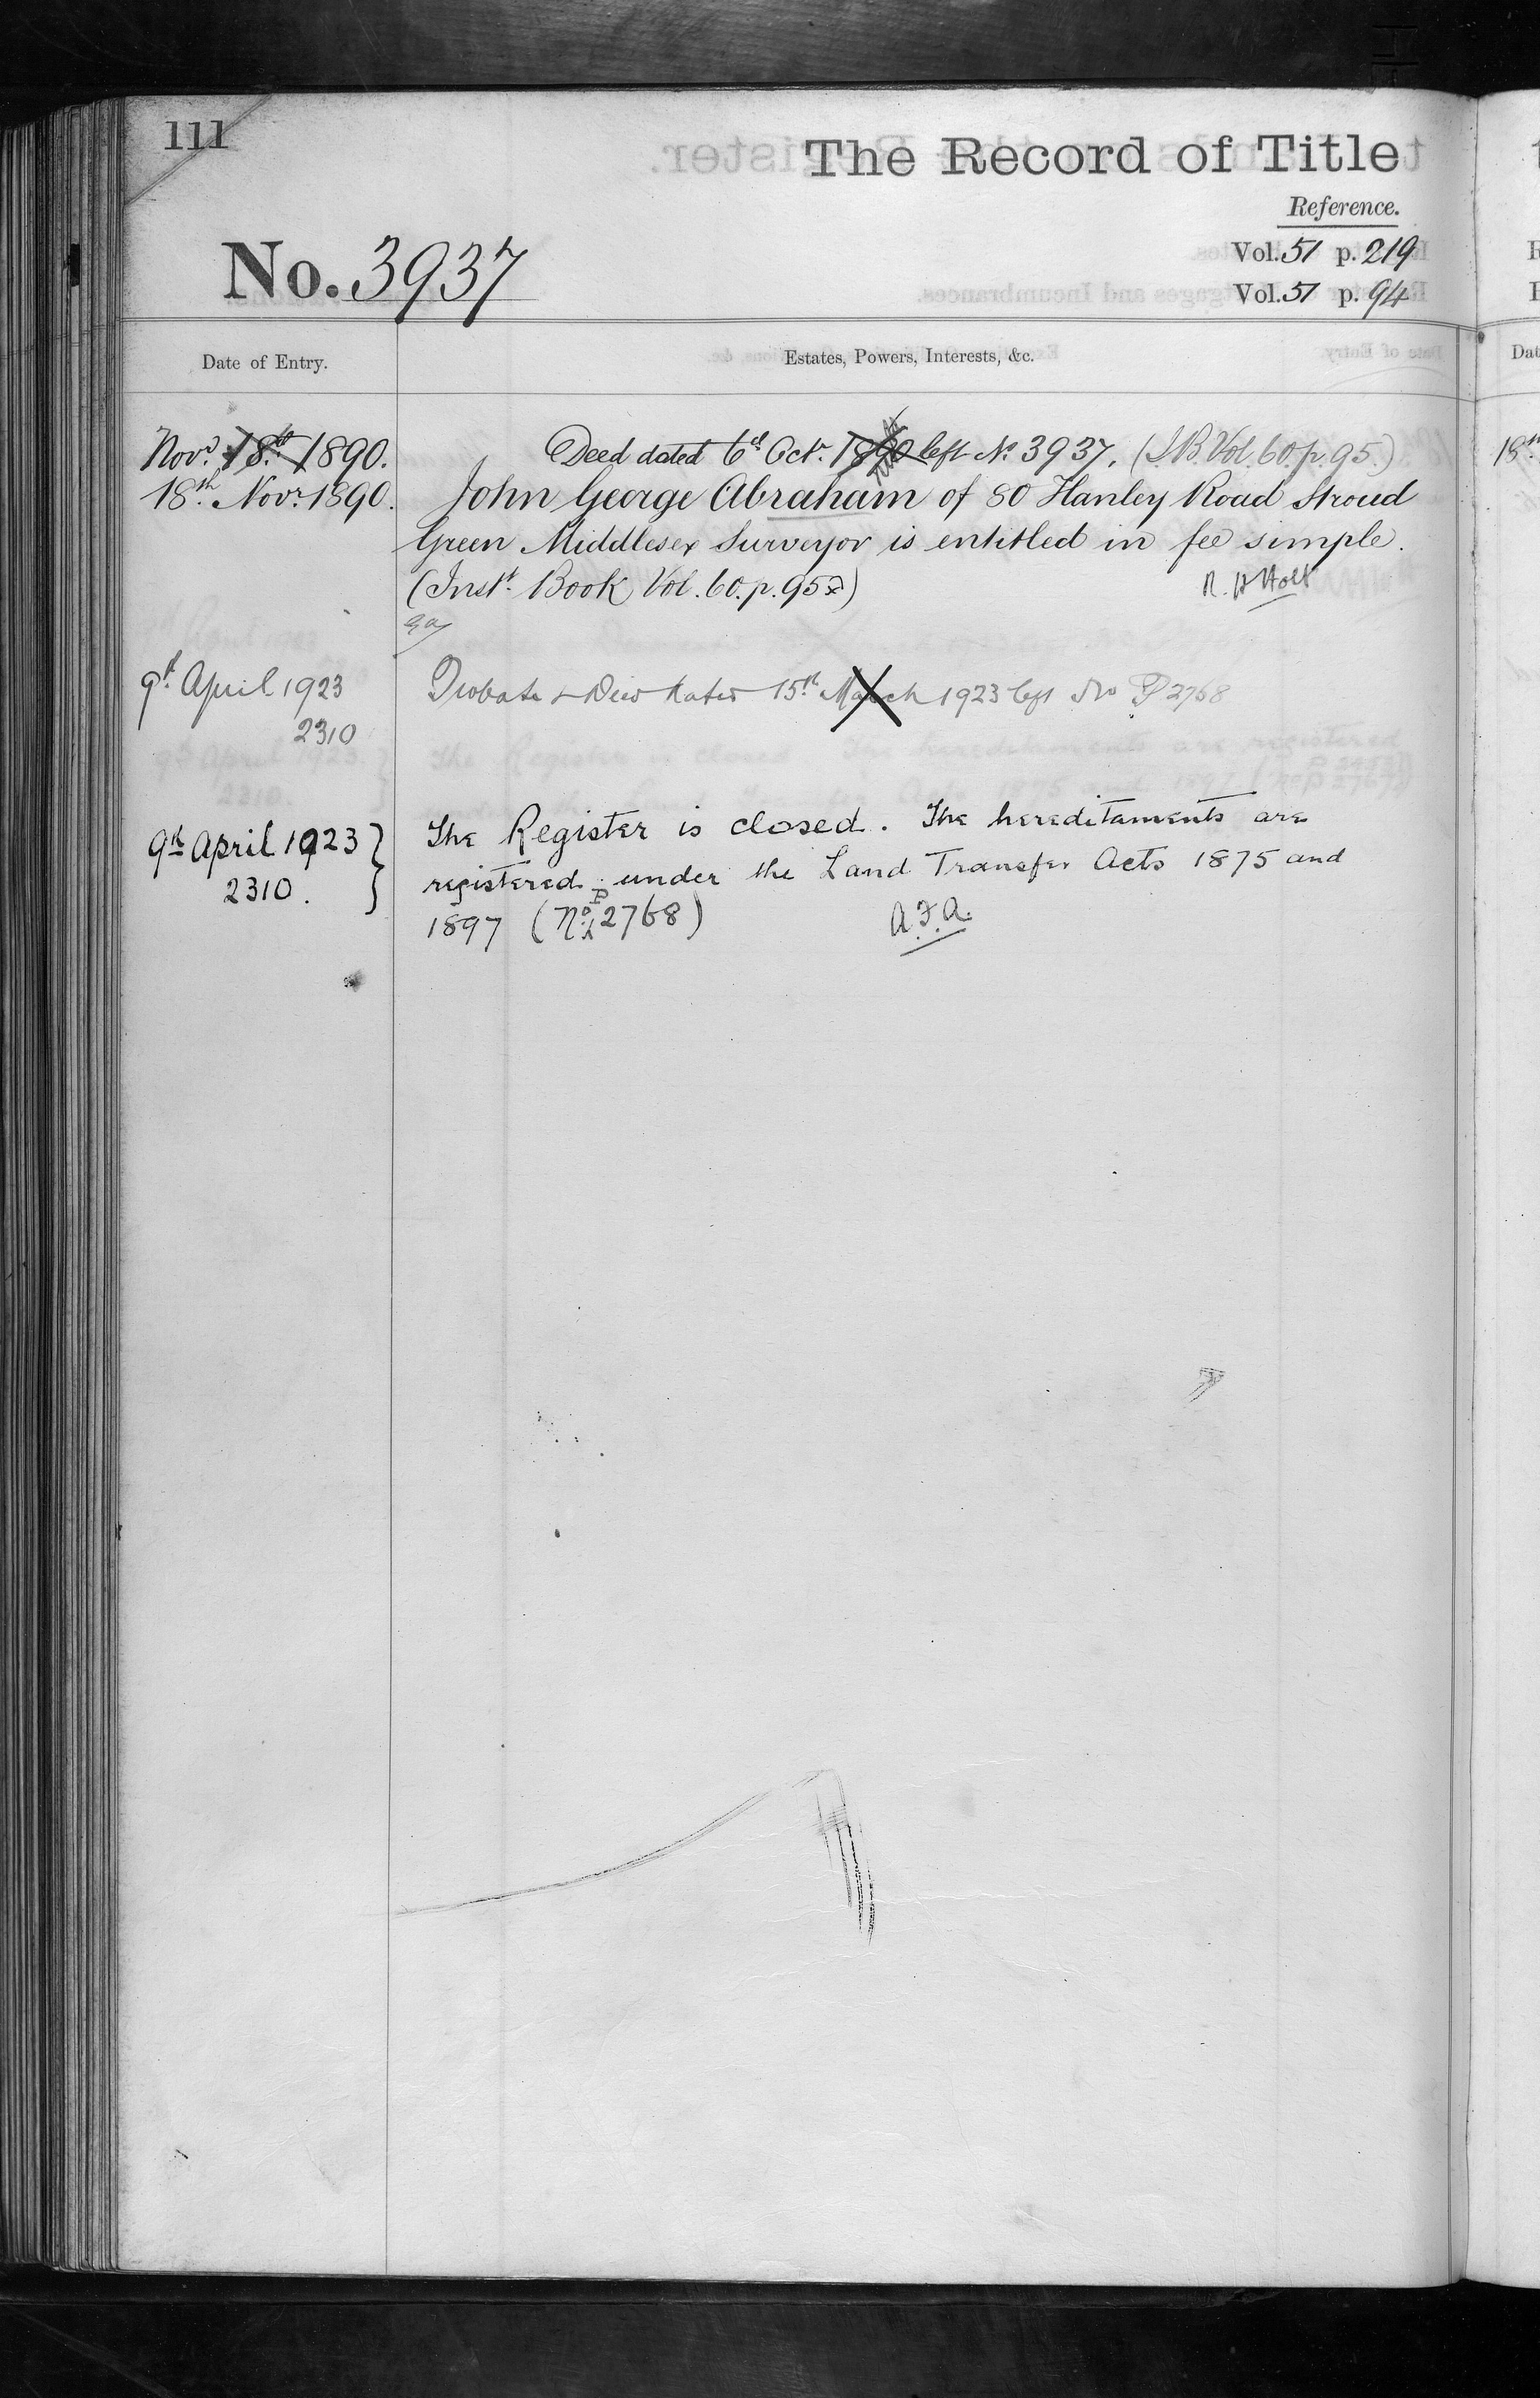 111
The Record of Title
Reference.
No. 3937
Vol. 51 p. 219
Vol. 51 p. 94
Date of Entry.
Estates, Powers, Interests, &c.
Novr. 18th 1890.
Deed dated 6th Octr. 1890 left No. 3937. (I.B. Vol. 60. p. 95.)
18th Novr. 1890.
John George Abraham of 80 Hanley Road Stroud
Green Middlesex Surveyor is entitled in fee simple.
(Inst. Book Vol. 60. p. 95)
R. H Holt
9th April 1923
2310
Probate & Deed dated 15th March 1923 left No P 2768
9th April 1923
2310.
The Register is closed. The hereditaments are
registered under the Land Transfer Acts 1875 and
1897 (No. P 2768)
A.F.A.